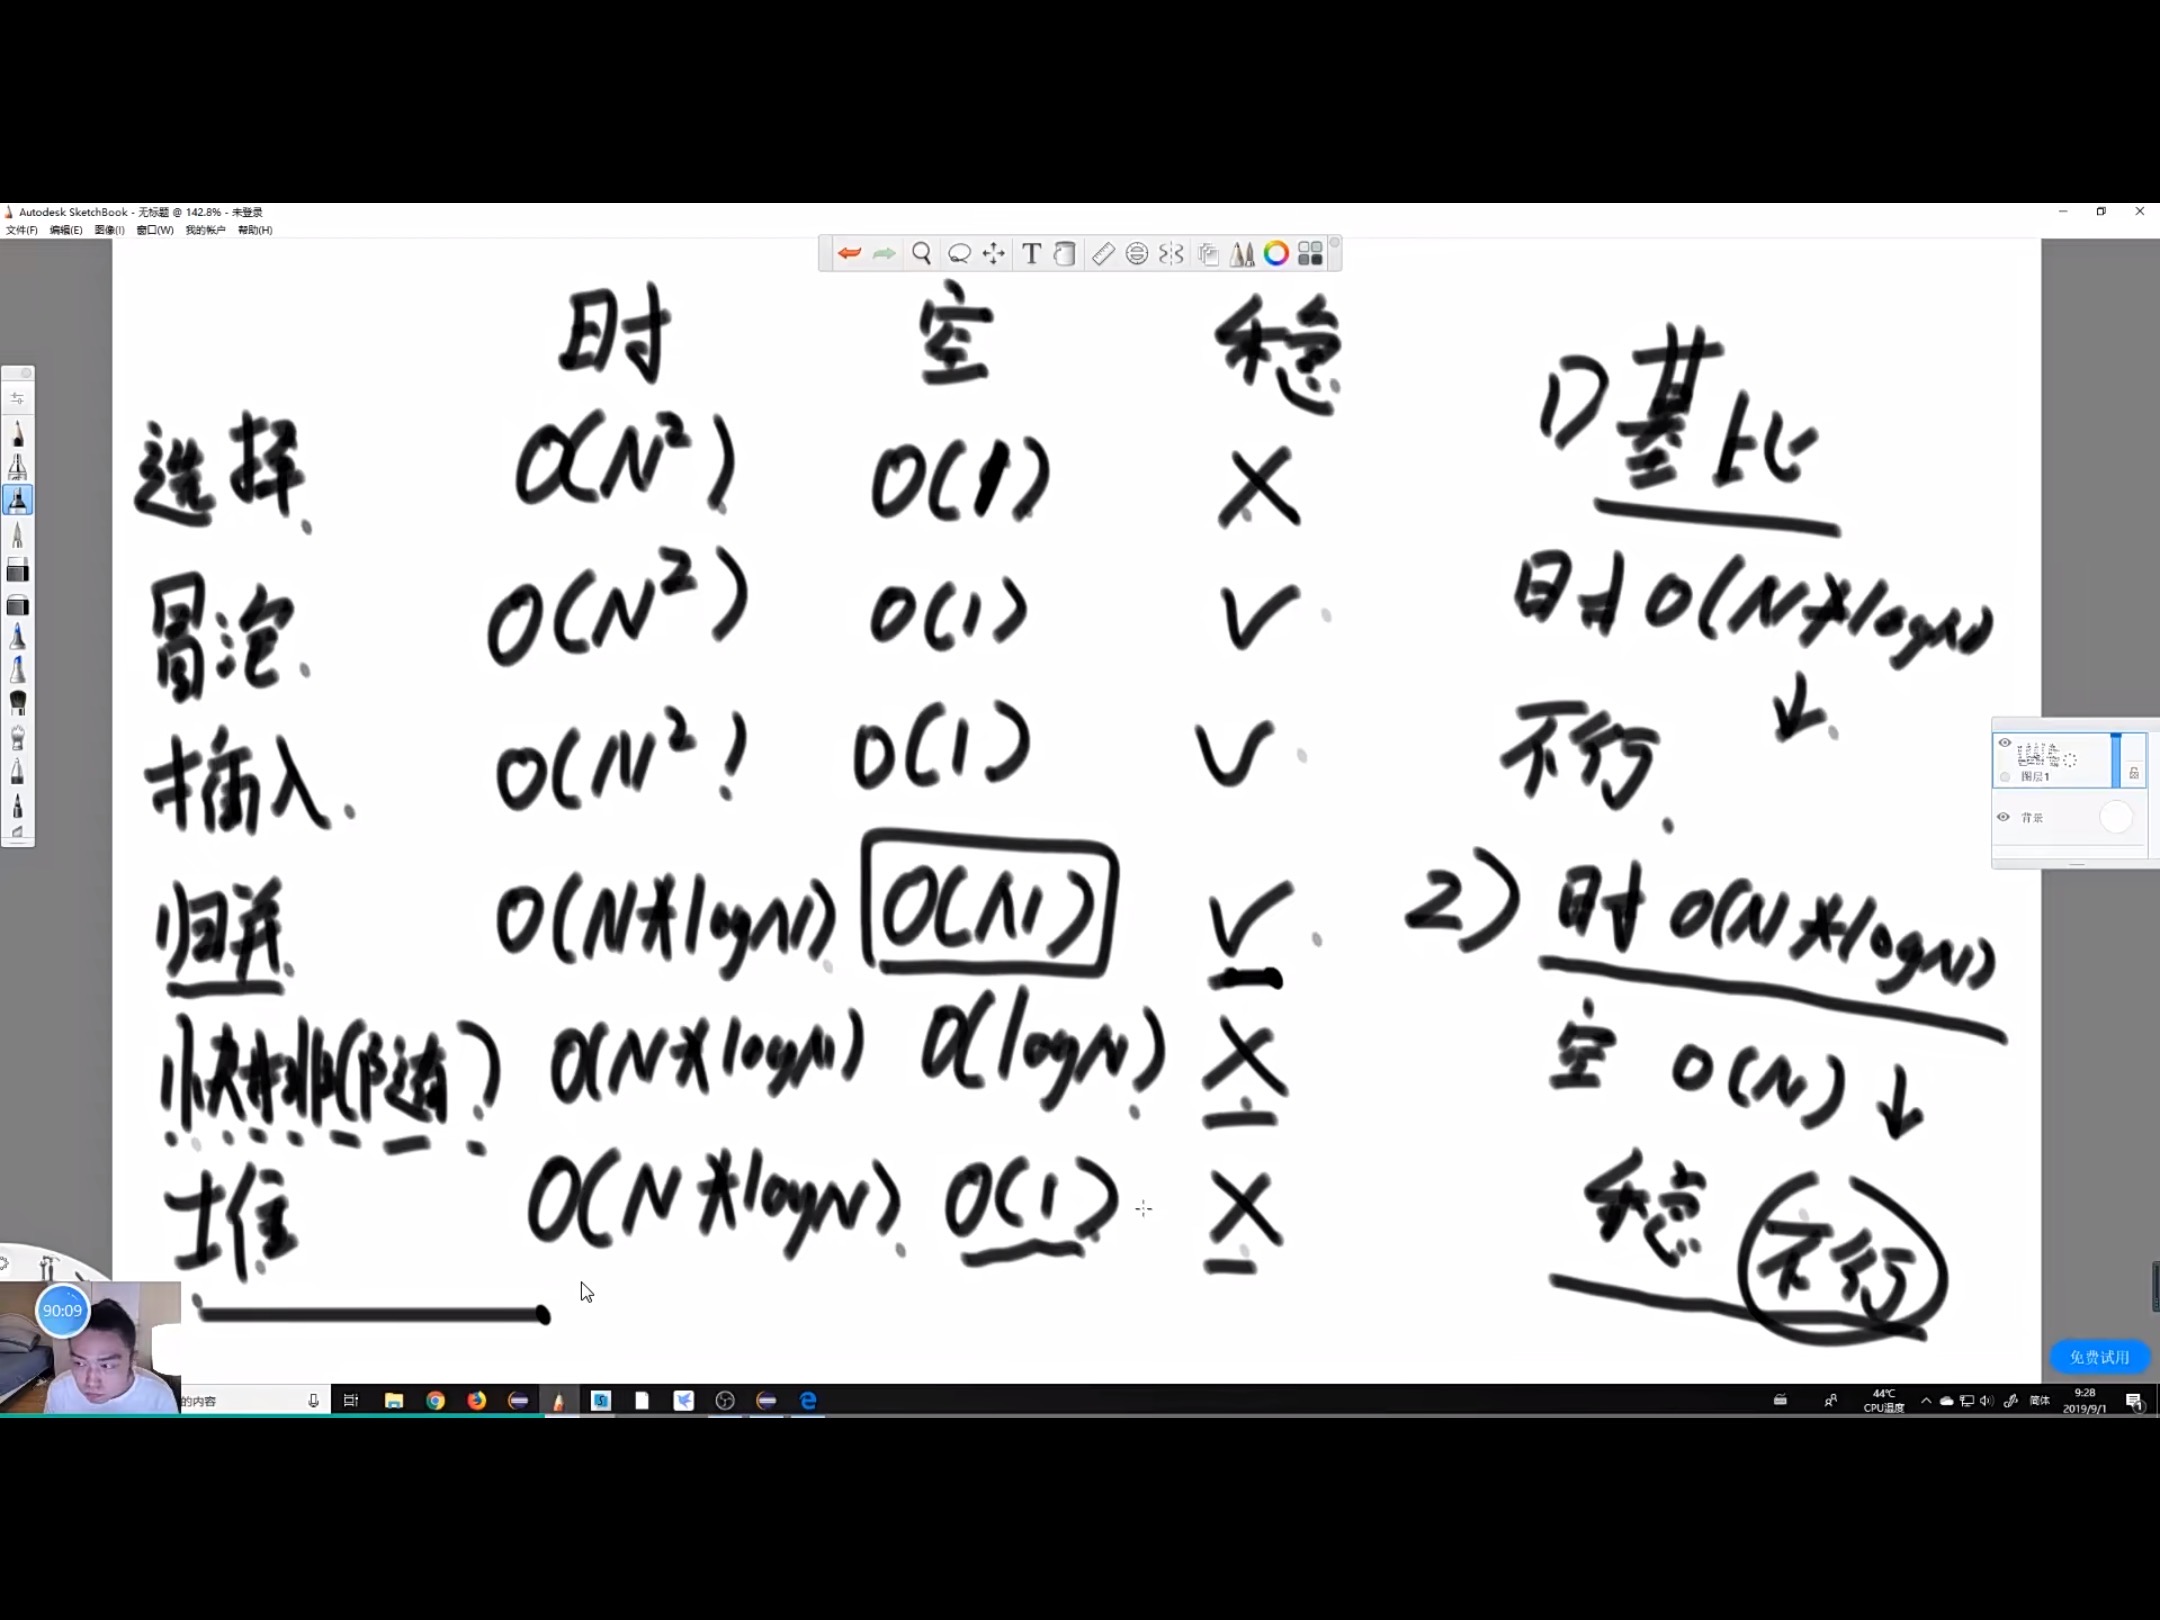 Autodesk SketchBook - 无标题 @ 142.8% - 未登录
文件(F) 编辑(E) 图像(I) 窗口(W) 我的帐户 帮助(H)
时 空 稳
选择 O(N²) O(1) X
冒泡 O(N²) O(1) √
插入 O(N²) O(1) √
归并 O(N*logN) O(N) √
快排(随) O(N*logN) O(logN) X
堆 O(N*logN) O(1) X
1) 基比
时 O(N*logN)
↓
不行
2) 时 O(N*logN)
空 O(N) ↓
稳 不行
图层1
背景
90:09
免费试用
的内容
44℃
CPU温度
简体
9:28
2019/9/1
1